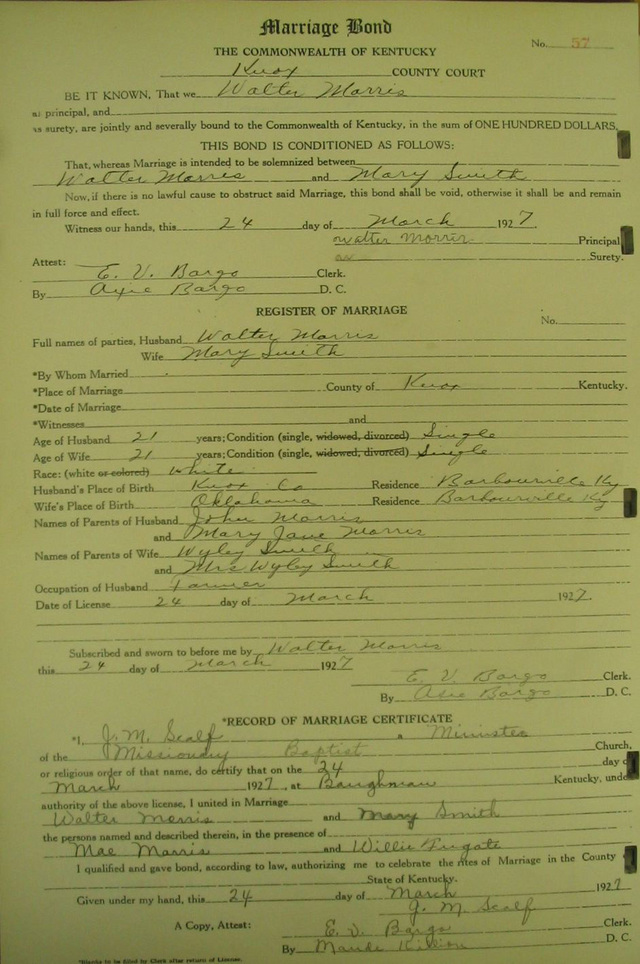 Marriage Bond
No. 57
THE COMMONWEALTH OF KENTUCKY
Knox COUNTY COURT
BE IT KNOWN, That we Walter Morris
as principal, and
as surety, are jointly and severally bound to the Commonwealth of Kentucky, in the sum of ONE HUNDRED DOLLARS.
THIS BOND IS CONDITIONED AS FOLLOWS:
That, whereas Marriage is intended to be solemnized between
Walter Morris and Mary Smith
Now, if there is no lawful cause to obstruct said Marriage, this bond shall be void, otherwise it shall be and remain
in full force and effect.
Witness our hands, this 24 day of March 1927
Walter Morris Principal
Surety.
Attest:
E. V. Bargo Clerk.
By Bargo D. C.
REGISTER OF MARRIAGE
No.
Full names of parties, Husband Walter Morris
Wife Mary Smith
*By Whom Married
*Place of Marriage County of Knox Kentucky.
*Date of Marriage
*Witnesses and
Age of Husband 21 years; Condition (single, widowed, divorced) Single
Age of Wife 21 years; Condition (single, widowed, divorced) Single
Race: (white or colored) White
Husband's Place of Birth Knox Co Residence Barbourville Ky
Wife's Place of Birth Oklahoma Residence Barbourville Ky
Names of Parents of Husband John Morris
and Mary Jane Morris
Names of Parents of Wife Wyley Smith
and Mrs Wyley Smith
Occupation of Husband Farmer
Date of License 24 day of March 1927.
Subscribed and sworn to before me by Walter Morris
this 24 day of March 1927
E. V. Bargo Clerk.
By Bargo D. C.
*RECORD OF MARRIAGE CERTIFICATE
*I, J. M. Scalf a Minister
of the Missionary Baptist Church,
or religious order of that name, do certify that on the 24 day of
March 1927, at Baughman Kentucky, under
authority of the above license, I united in Marriage
Walter Morris and Mary Smith
the persons named and described therein, in the presence of
Mae Morris and Willie Fugate
I qualified and gave bond, according to law, authorizing me to celebrate the rites of Marriage in the County
State of Kentucky.
Given under my hand, this 24 day of March 1927
J. M. Scalf
A Copy, Attest: E. V. Bargo Clerk.
By Maude D. C.
*Blanks to be filed by Clerk after return of License.